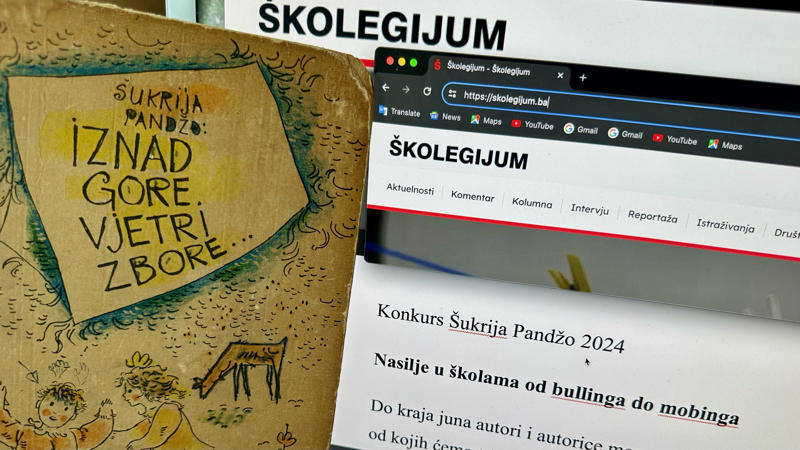 ŠUKRIJA
PANDŽO:
IZNAD
GORE.
VJETRI
ZBORE...
ŠKOLEGIJUM
Školegijum - Školegijum
https://skolegijum.ba
Translate News Maps YouTube Gmail Gmail YouTube Maps
ŠKOLEGIJUM
Aktuelnosti Komentar Kolumna Intervju Reportaža Istraživanja
Konkurs Šukrija Pandžo 2024
Nasilje u školama od bullinga do mobinga
Do kraja juna autori i autorice
od kojih ćemo